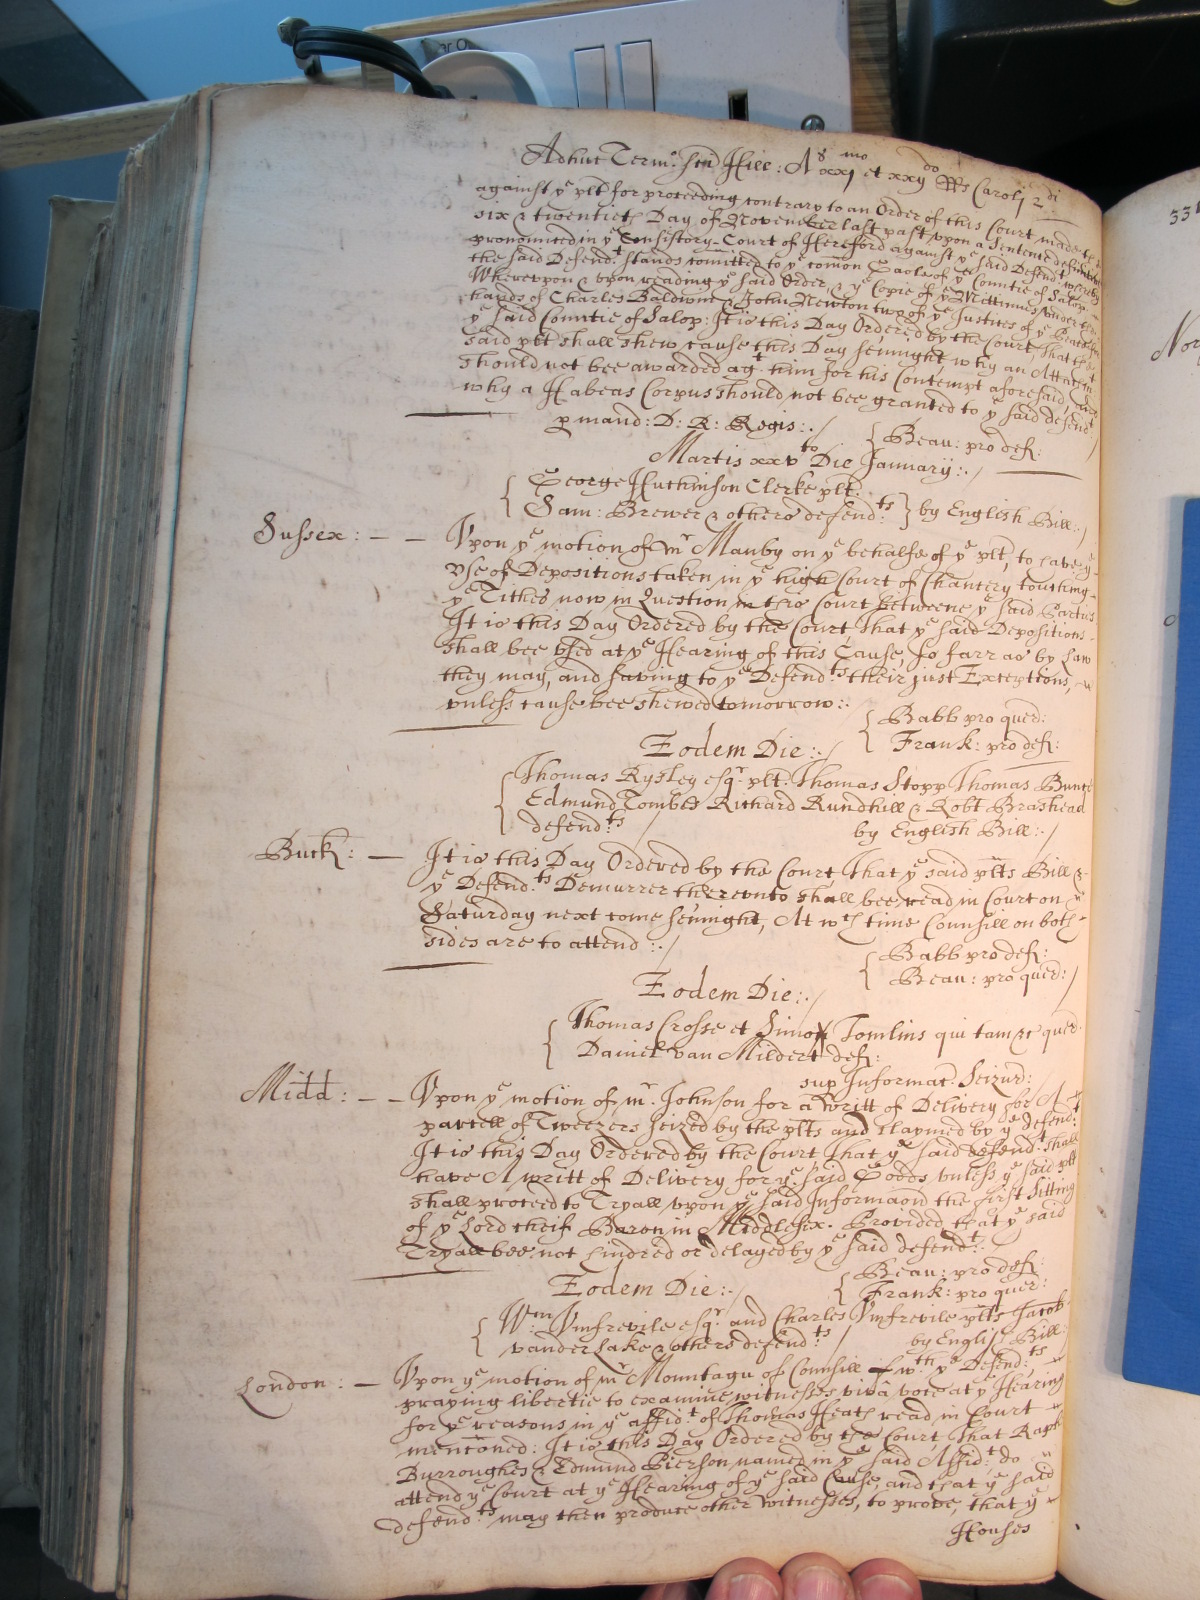 Adhuc Term.o Sci Hill: A.o xxj mo et xxij do RRs Caroli 2 di
against ye plt for proceeding contrary to an Order of this Court made the
six & twentieth Day of November last past vpon a Sentence definitive
pronounced in ye Consistory-Court of Hereford against ye said Defend.t whereby
the said Defend.t stands comitted to ye comon Gaole of ye Countie of Salop
Wherevpon & vpon reading ye said Order, & ye Copie of ye Mittimus vnder the
hands of Charles Baldwine & John Newton two of ye Justices of ye Peace
ye said Countie of Salop: It is this Day Ordered by the Court, That the
said plt shall shew cause this Day sennight, why an Attachm.t
should not bee awarded ag.t him for his Contempt aforesaid, and
why a Habeas Corpus should not bee granted to ye said defend.t
p mand: D: R: Regis:./ { Beau: pro def:
Martis xxv to Die January:./
{ George Hutchinson Clerke plt.
Sam: Brewer & others defend:ts } by English Bill:./
Sussex: — — Vpon ye motion of mr Mauby on ye behalfe of ye plt, to have ye
vse of Depositions taken in ye high Court of Chancery touching
ye Tithes now in Question in this Court betweene ye said Parties
It is this Day Ordered by the Court, That ye said Depositions
shall bee vsed at ye Hearing of this Cause, so farr as by Law
they may, and saving to ye Defend:ts their just Exceptions,
vnless cause bee shewed tomorrow:.
{ Babb pro quer:
Frank: pro def:
Eodem Die:./
{ Thomas Rysley esqr plt. Thomas Stopp Thomas Bunce
Edmund Tombes Richard Rundhill & Robt Brashead
defend:ts / by English Bill:./
Buck: — It is this Day Ordered by the Court, That ye said plts Bill &
ye Defend:ts Demurrer therevnto shall bee read in Court on
Saturday next come sennight, At wch time Counsill on both
sides are to attend:./
{ Babb pro def:
Beau: pro quer: /
Eodem Die:./
{ Thomas Crosse et Simon Tomlins qui tam &c quer.
Daniel van Mildert def:
sup Informat. Seizur: /
Midd: — — Vpon ye motion of mr. Johnson for a Writt of Delivery for A
parcell of Tweezers seized by the plts and claymed by ye defend:t
It is this Day Ordered by the Court, That ye said defend:t shall
have A writt of Delivery for ye said Goods vnless ye said plt
shall proceed to Tryall vpon ye said Informacon the first Sitting
of ye Lord cheif Baron in Middlesex. Provided that ye said
Tryall bee not hindred or delayed by ye said defend:t.
{ Beau: pro def:
Frank: pro quer:
Eodem Die:./
{ Wm Vmfrevile esqr. and Charles Vmfrevile plts Jacob
vander Lake & others defend:ts / by English Bill:
London: — Vpon ye motion of mr Mountagu of Counsill wth ye Defend:ts
praying libertie to examine witnesses viva voce at ye Hearing
for ye reasons in ye affid.t of Thomas Heath read in Court
mentoned: It is this Day Ordered by the Court, That Raph
Burroughes & Edmund Pierson named in ye said Affid:t do
attend ye Court at ye Hearing of ye said Cause, and that ye said
defend:ts may then produce other witnesses, to prove, that ye
Houses
331
Nor